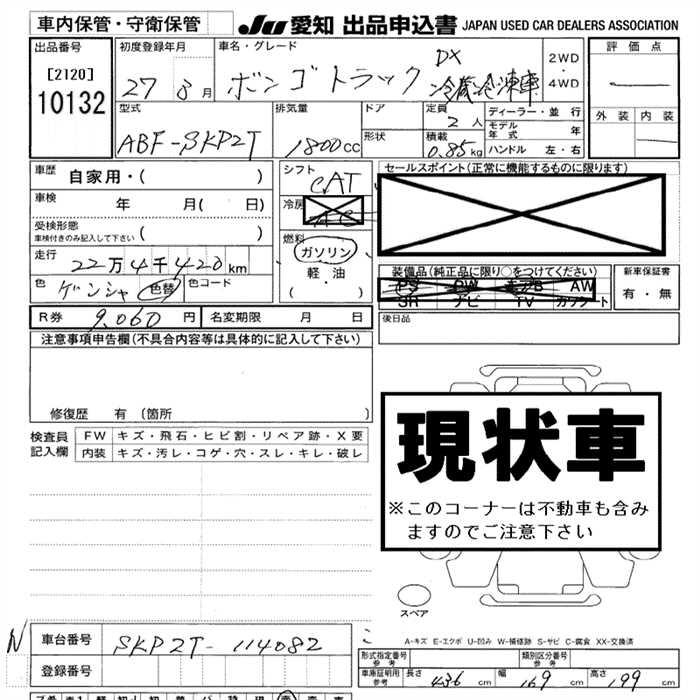 車内保管・守衛保管
JU 愛知 出品申込書 JAPAN USED CAR DEALERS ASSOCIATION
出品番号 初度登録年月 車名・グレード 2WD・4WD 評価点
[2120]
10132
27 8月 ボンゴトラック DX 冷蔵冷凍車
型式 排気量 ドア 定員 ディーラー・並行 外装 内装
形状 2人 モデル年式 年
ABF-SKP2T 1800cc 積載 0.85kg ハンドル 左・右
車歴 自家用・( ) シフト CAT セールスポイント(正常に機能するものに限ります)
車検 年 月( 日) 冷房 AC
受検形態
車検付きのみ記入して下さい
燃料
ガソリン
軽・油
( ・ )
走行 22万4千420km
色 ゲンシャ 色替 色コード
装備品(純正品に限り○をつけてください) 新車保証書
PS PW AW 有・無
SR ナビ TV
R券 9,060円 名変期限 月 日 後日品
注意事項申告欄(不具合内容等は具体的に記入して下さい)
修復歴 有(箇所 )
検査員記入欄 FW キズ・飛石・ヒビ割・リペア跡・X要
内装 キズ・汚レ・コゲ・穴・スレ・キレ・破レ
現状車
※このコーナーは不動車も含み
ますのでご注意下さい
スペア
A-キズ E-エクボ U-凹み W-補修跡 S-サビ C-腐食 XX-交換済
N 車台番号 SKP2T-114082
登録番号
形式指定番号 参考 類別区分番号 参考
車庫証明用 参考 長さ 436cm 幅 169cm 高さ 199cm